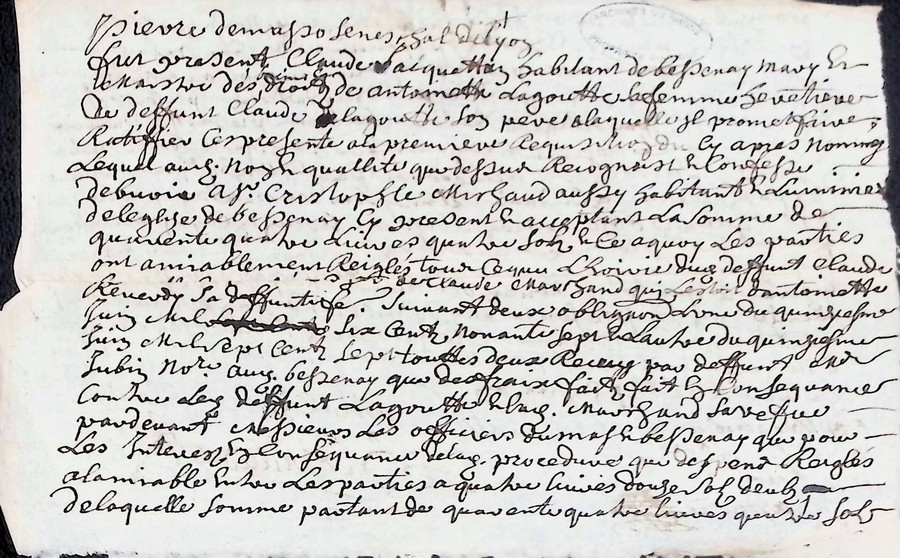 pierre demasso seneschal de lyon
fut present Claude Jacquetton habitant de bessenay mary et
Maistre des droits de antoinette Lagoutte sa femme heretiere
de deffunt Claude Lagoutte son pere a laquelle il promet faire
Rattiffier Ces presente a la premiere Requisition Cy apres nommes
Lequel aud. nom et quallite que dessus Recognoist et Confesse
debvoir a Sr. Cristophle Michaud aussy habitant et Luminier
de leglise de bessenay Cy present et acceptant La somme de
quarente quatre Livres quatre solz a Ce a quoy Les parties
ont amiablement Reiglés tout Ce que Lhoirie dud deffunt Claude
de Claude Marchand
Suivant deux obligations Lune du quinziesme
Juin Mil Six Cent Nonante Sept et Lautre du quinziesme
Juin Mil Sept Cent Sept touttes deux Recues par deffunt
Jubin Nore. aud. bessenay que des fraix faits en Consequance
Contre Led deffunt Lagoutte et lad. Marchand sa veffve
pardevant Messieurs Les officiers du mas et bessenay que pour
Les Interest en Consequance de lad. procedure que despens Reiglés
a lamiable entre Les parties a quatre livres douze solz
de laquelle somme partant de quarente quatre livres quatre solz